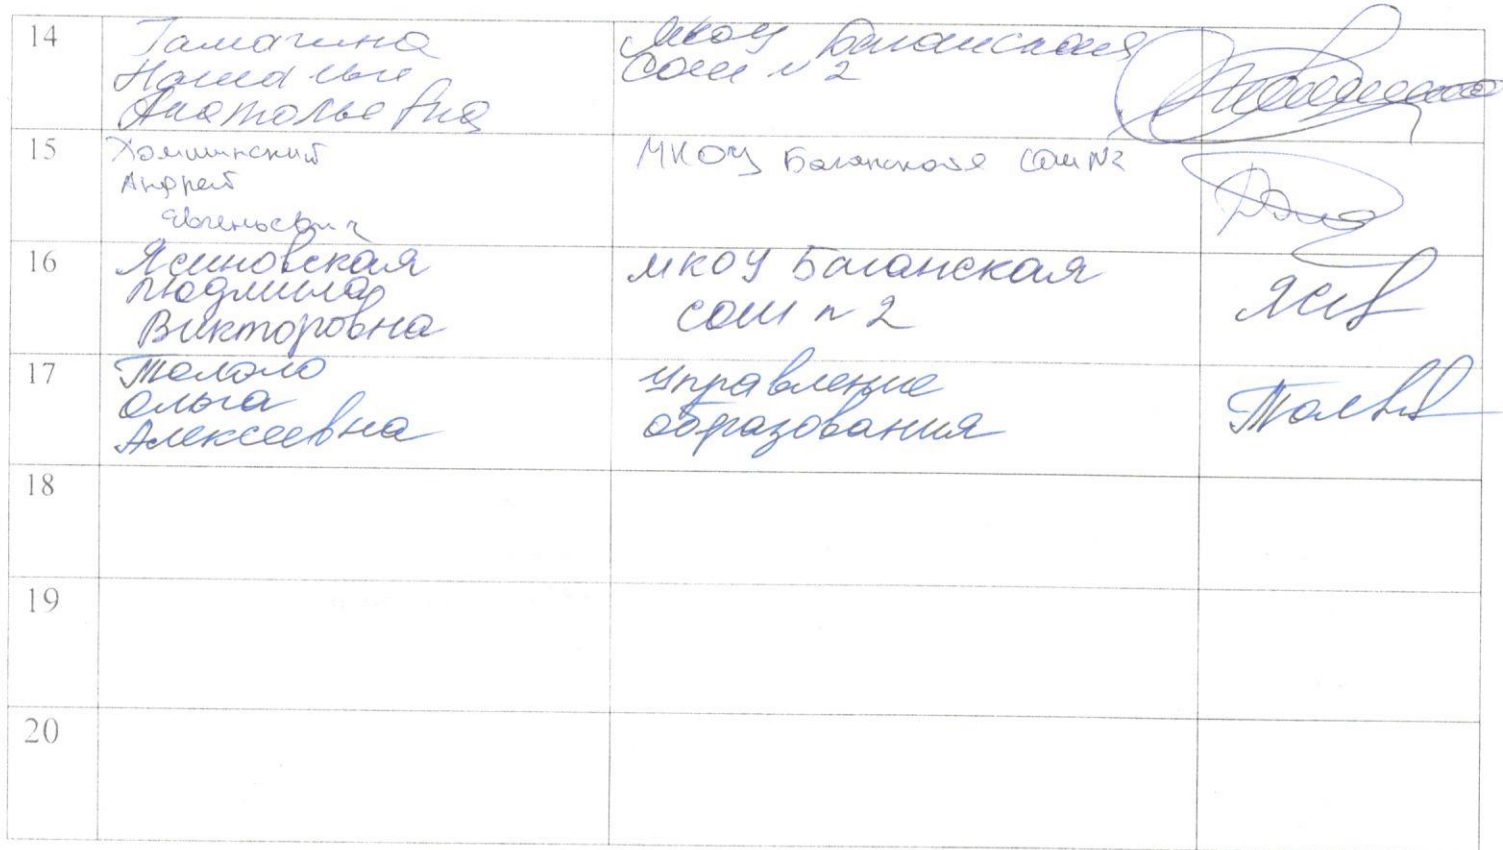 14
Наталья
Анатольевна
МКОУ Баганская
СОШ № 2
15
Андрей
Евгеньевич
МКОУ Баганская СОШ №2
16
Ясиновская
Людмила
Викторовна
МКОУ Баганская
СОШ № 2
17
Ольга
Алексеевна
Управление
образования
18
19
20